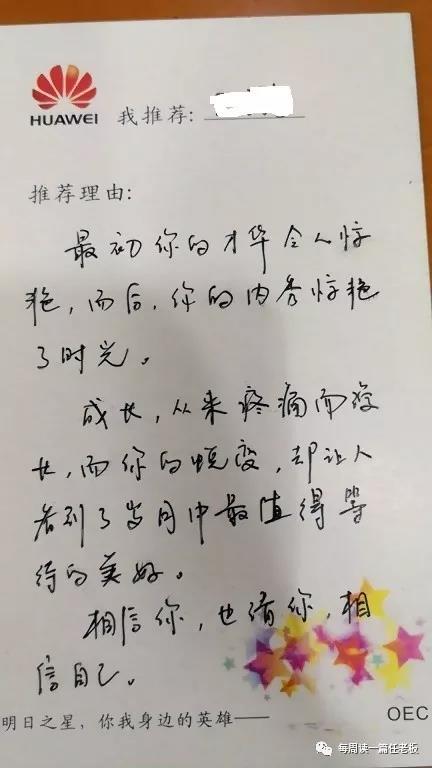 HUAWEI 我推荐:
推荐理由:
最初你的才华令人惊
艳，而后，你的内秀惊艳
了时光。
成长，从来疼痛而漫
长，而你的蜕变，却让人
看到了岁月中最值得等
待的美好。
相信你，也请你，相
信自己。
明日之星，你我身边的英雄——
OEC
每周读一篇任老板